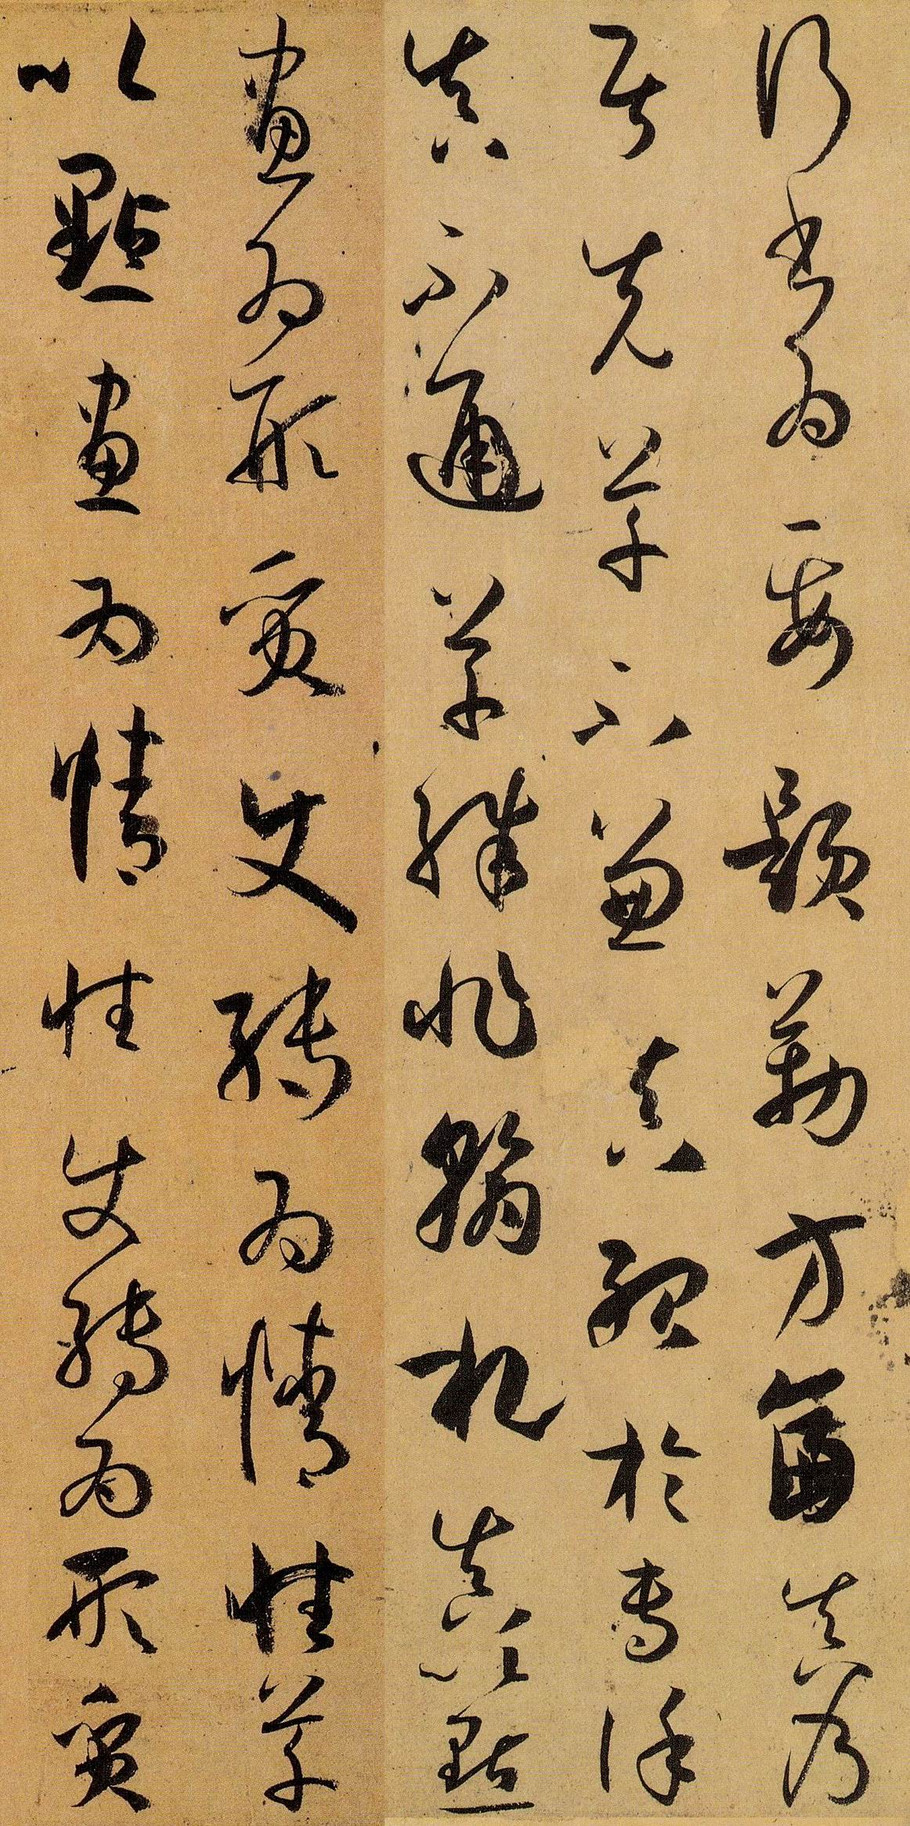 行書為要題勒方畐真乃
居先草不兼真殆於專謹
真不通草殊非翰札真以點
畫為形質使轉為情性草
以點畫為情性使轉為形質